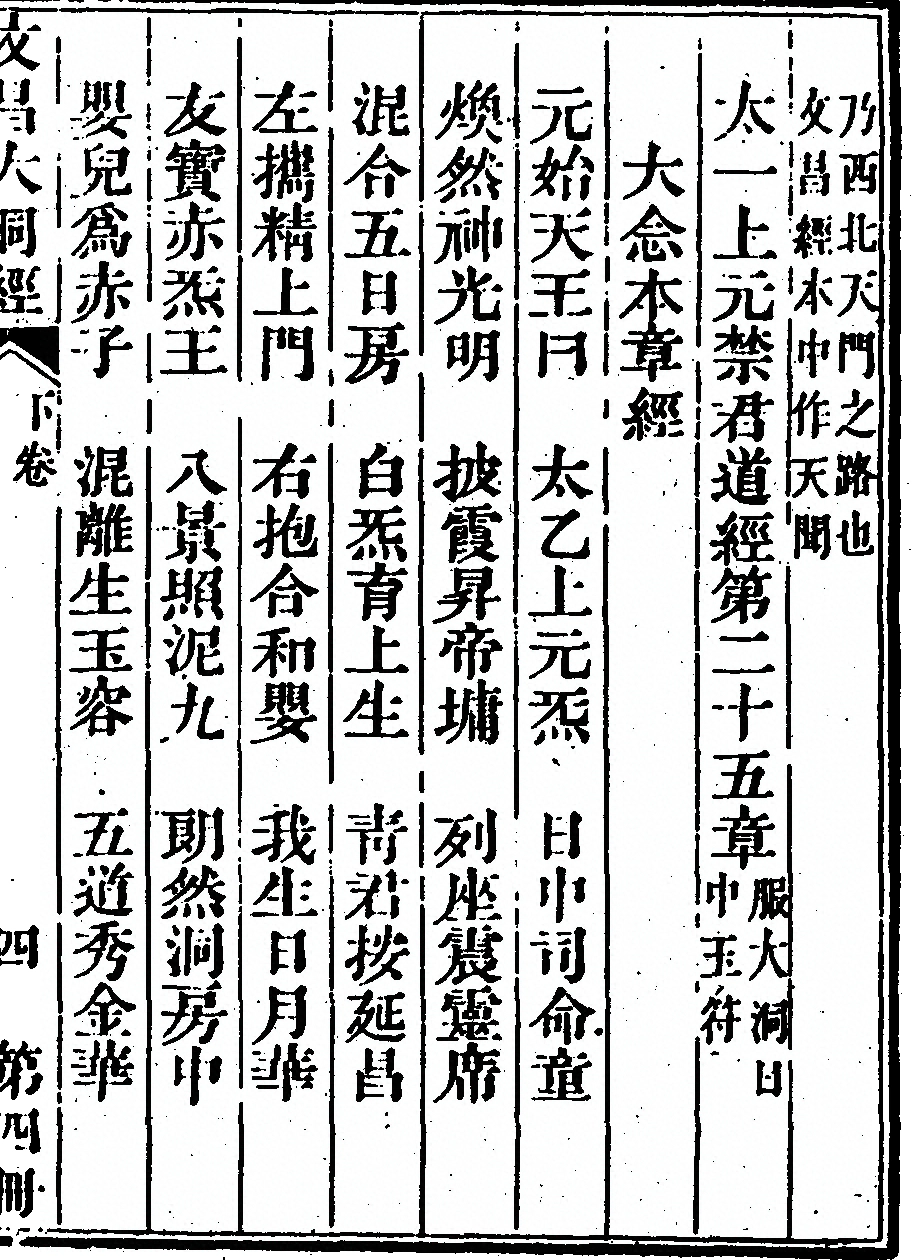 乃西北天門之路也
文昌經本中作天聞
太一上元禁君道經第二十五章服大洞日中玉符
大念本章經
元始天王曰 太乙上元炁 日中司命童
煥然神光明 披霞昇帝墉 列座震靈席
混合五日房 白炁育上生 靑君按延昌
左攜精上門 右抱合和嬰 我生日月華
友寶赤炁王 八景照泥九 朗然洞房中
嬰兒爲赤子 混離生玉容 五道秀金華
文昌大洞經 下卷 四 第四冊